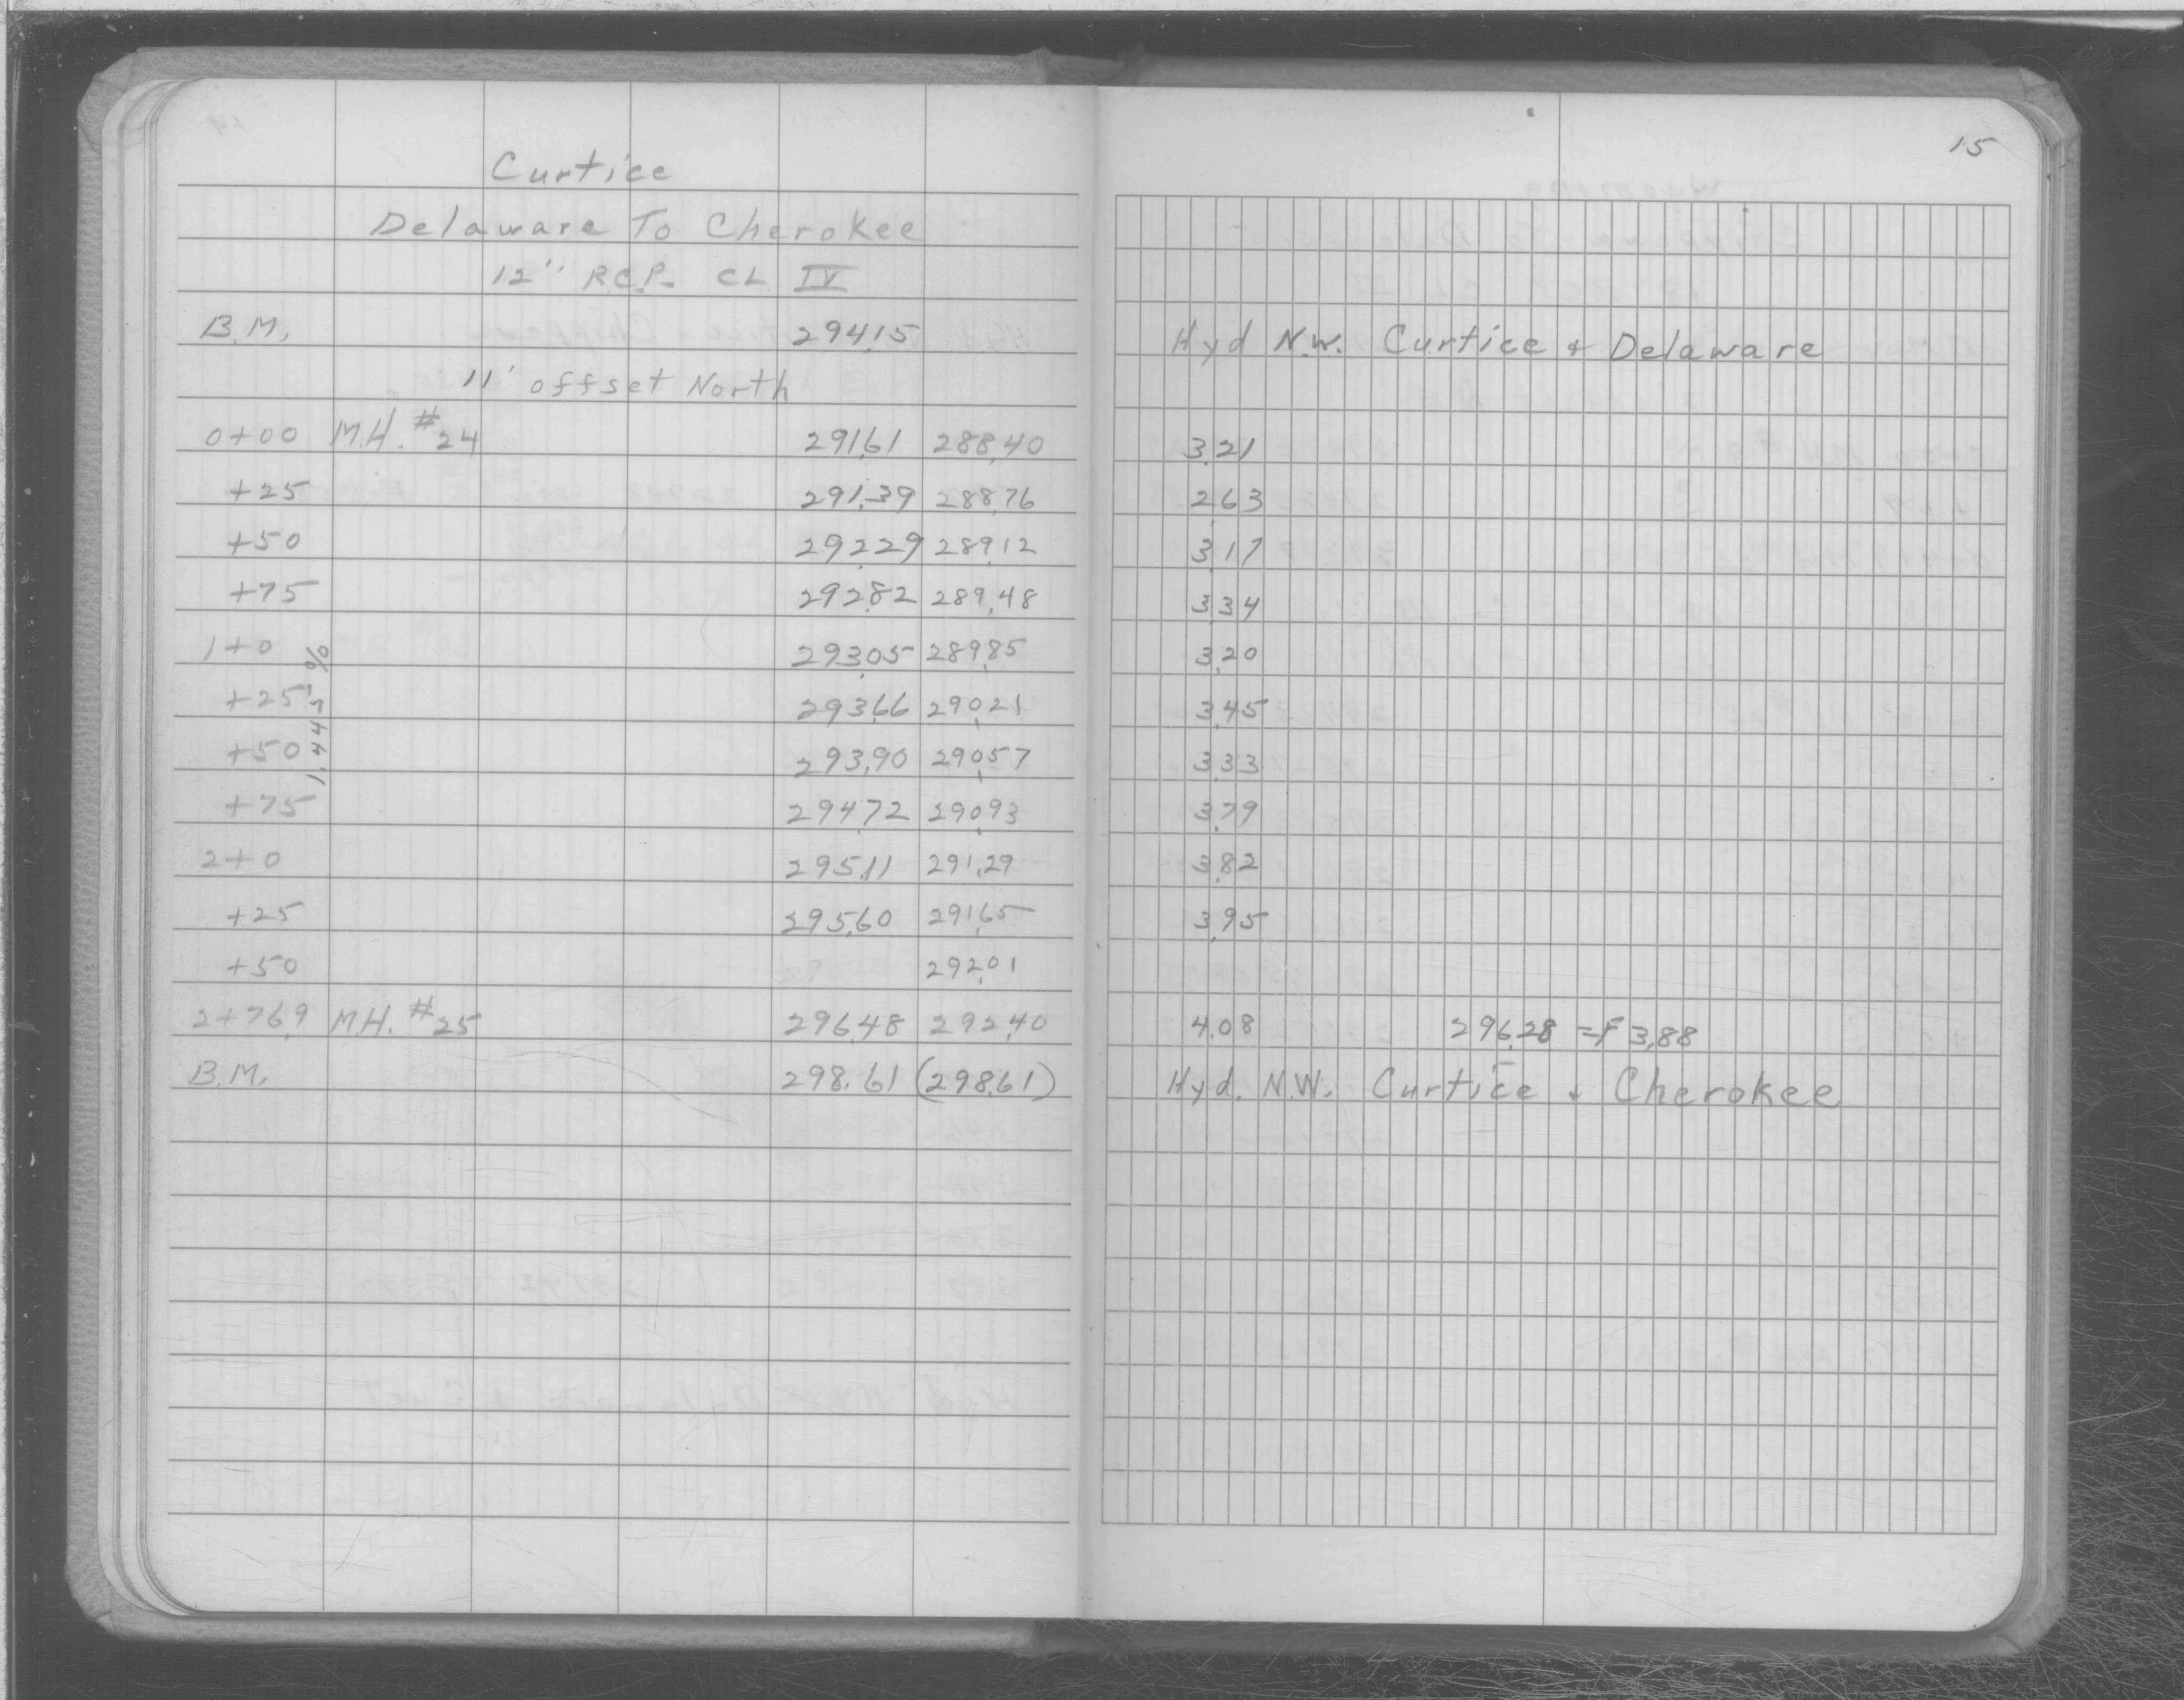 15
Curtice
Delaware To Cherokee
12" R.C.P. CL IV
B.M. 294.15 Hyd N.W. Curtice + Delaware
11' offset North
0+00 M.H. #24 291.61 288.40 3.21
+25 291.39 288.76 2.63
+50 292.29 289.12 3.17
+75 292.82 289.48 3.34
1+0 293.05 289.85 3.20
+25 293.66 290.21 3.45
+50 293.90 290.57 3.33
+75 294.72 290.93 3.79
2+0 295.11 291.29 3.82
+25 295.60 291.65 3.95
+50 29 292.01
2+76.9 M.H. #25 296.48 292.40 4.08 296.28 = F 3.88
B.M. 298.61 (298.61) Hyd. N.W. Curtice + Cherokee